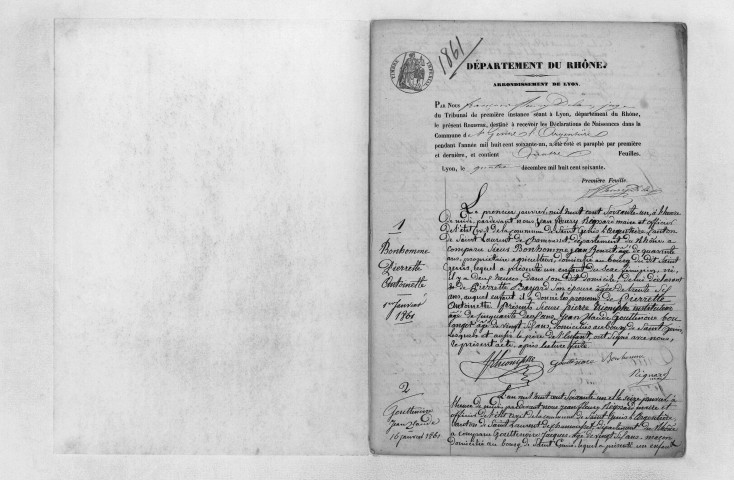 1861
DÉPARTEMENT DU RHÔNE
ARRONDISSEMENT DE LYON.
PAR NOUS
du Tribunal de première instance séant à Lyon, département du Rhône,
le présent REGISTRE, destiné à recevoir les Déclarations de Naissances dans la
Commune de St Genis l'Argentière
pendant l'année mil huit cent soixante-un, a été coté et paraphé par première
et dernière, et contient Feuilles.
Lyon, le quatre décembre mil huit cent soixante.
Première Feuille.
1
Bonhomme
Pierrette
Antoinette
1er janvier
1861
Le premier janvier, mil huit cent soixante-un, à l'heure
de midi, pardevant nous Jean fleury Rignard maire et officier
de l'état civil de la commune de Saint Genis l'Argentière canton
de Saint Laurent de Chamousset département du Rhône a
comparu Sieur Bonhomme Jean Benoit âgé de quarante
ans, propriétaire agriculteur, domicilié au bourg du dit Saint
Genis, lequel a présenté un enfant du sexe féminin, né,
il y a deux heures, dans son dit domicile, de lui déclarant
& de Pierrette Bazard son épouse âgée de trente six
ans, auquel enfant il a donné les prénoms de Pierrette
Antoinette. Présents Sieurs pierre Thiomphe instituteur
âgé de cinquante deux ans, Jean Claude Gouttenoire bou
langer âgé de vingt six ans, domiciliés au bourg de Saint Genis
lesquels et aussi le père de l'enfant, ont signé avec nous,
le présent acte, après lecture faite.
Gouttenoire Bonhomme
Rignard
2
Gouttenoire
Jean Claude
16 janvier 1861
L'an mil huit cent soixante un et le seize janvier, à
l'heure de midi, pardevant nous Jean fleury Rignard maire et
officier de l'état civil de la commune de Saint Genis l'Argentière
canton de Saint Laurent de Chamousset, département du Rhône
a comparu Gouttenoire Jacques âgé de vingt six ans, maçon
domicilié au bourg de Saint Genis, lequel a présenté un enfant